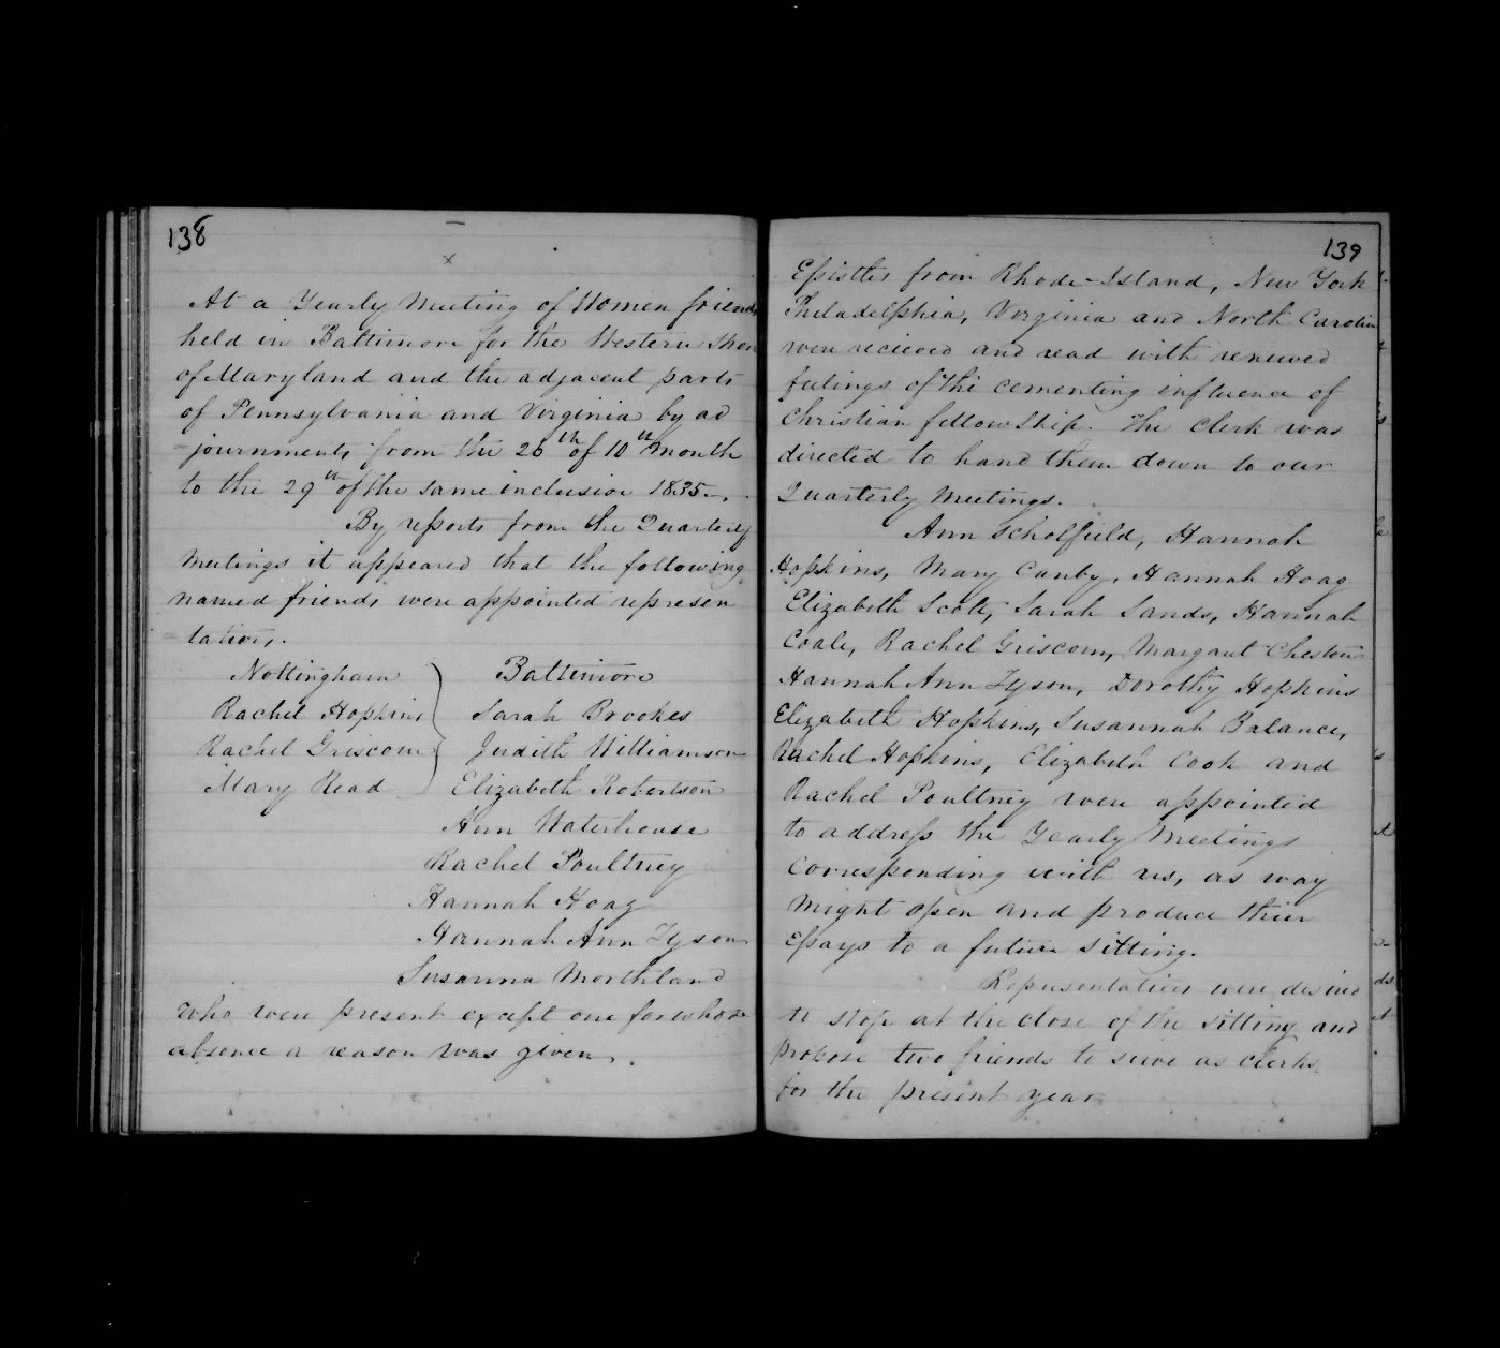 138
x
At a Yearly Meeting of Women friends
held in Baltimore for the Western Shore
of Maryland and the adjacent parts
of Pennsylvania and Virginia by ad
journments from the 26th of 10th month
to the 29th of the same inclusive 1835.
By reports from the Quarterly
Meetings it appeared that the following
named friends were appointed represen
tatives.
Nottingham } Baltimore
Rachel Hopkins Sarah Brookes
Rachel Griscom Judith Williamson
Mary Head Elizabeth Robertson
Ann Waterhouse
Rachel Poultney
Hannah Hoag
Hannah Ann Tyson
Susanna Morthland
Who were present except one for whose
absence a reason was given.
139
Epistles from Rhode-Island, New York
Philadelphia, Virginia and North Carolina
were recieved and read with renewed
feelings of the cementing influence of
Christian fellowship. The Clerk was
directed to hand them down to our
Quarterly Meetings.
Ann Scholfield, Hannah
Hopkins, Mary Canby, Hannah Hoag
Elizabeth Scott, Sarah Sands, Hannah
Coale, Rachel Griscom, Margaret Cheston
Hannah Ann Tyson, Dorothy Hopkins
Elizabeth Hopkins, Susannah Balance,
Rachel Hopkins, Elizabeth Cook and
Rachel Poultney were appointed
to address the Yearly Meetings
Corresponding with us, as way
might open and produce thier
Essays to a future sitting.
Representatives were desired
to stop at the close of the sitting and
propose two friends to serve as clerks
for the present year